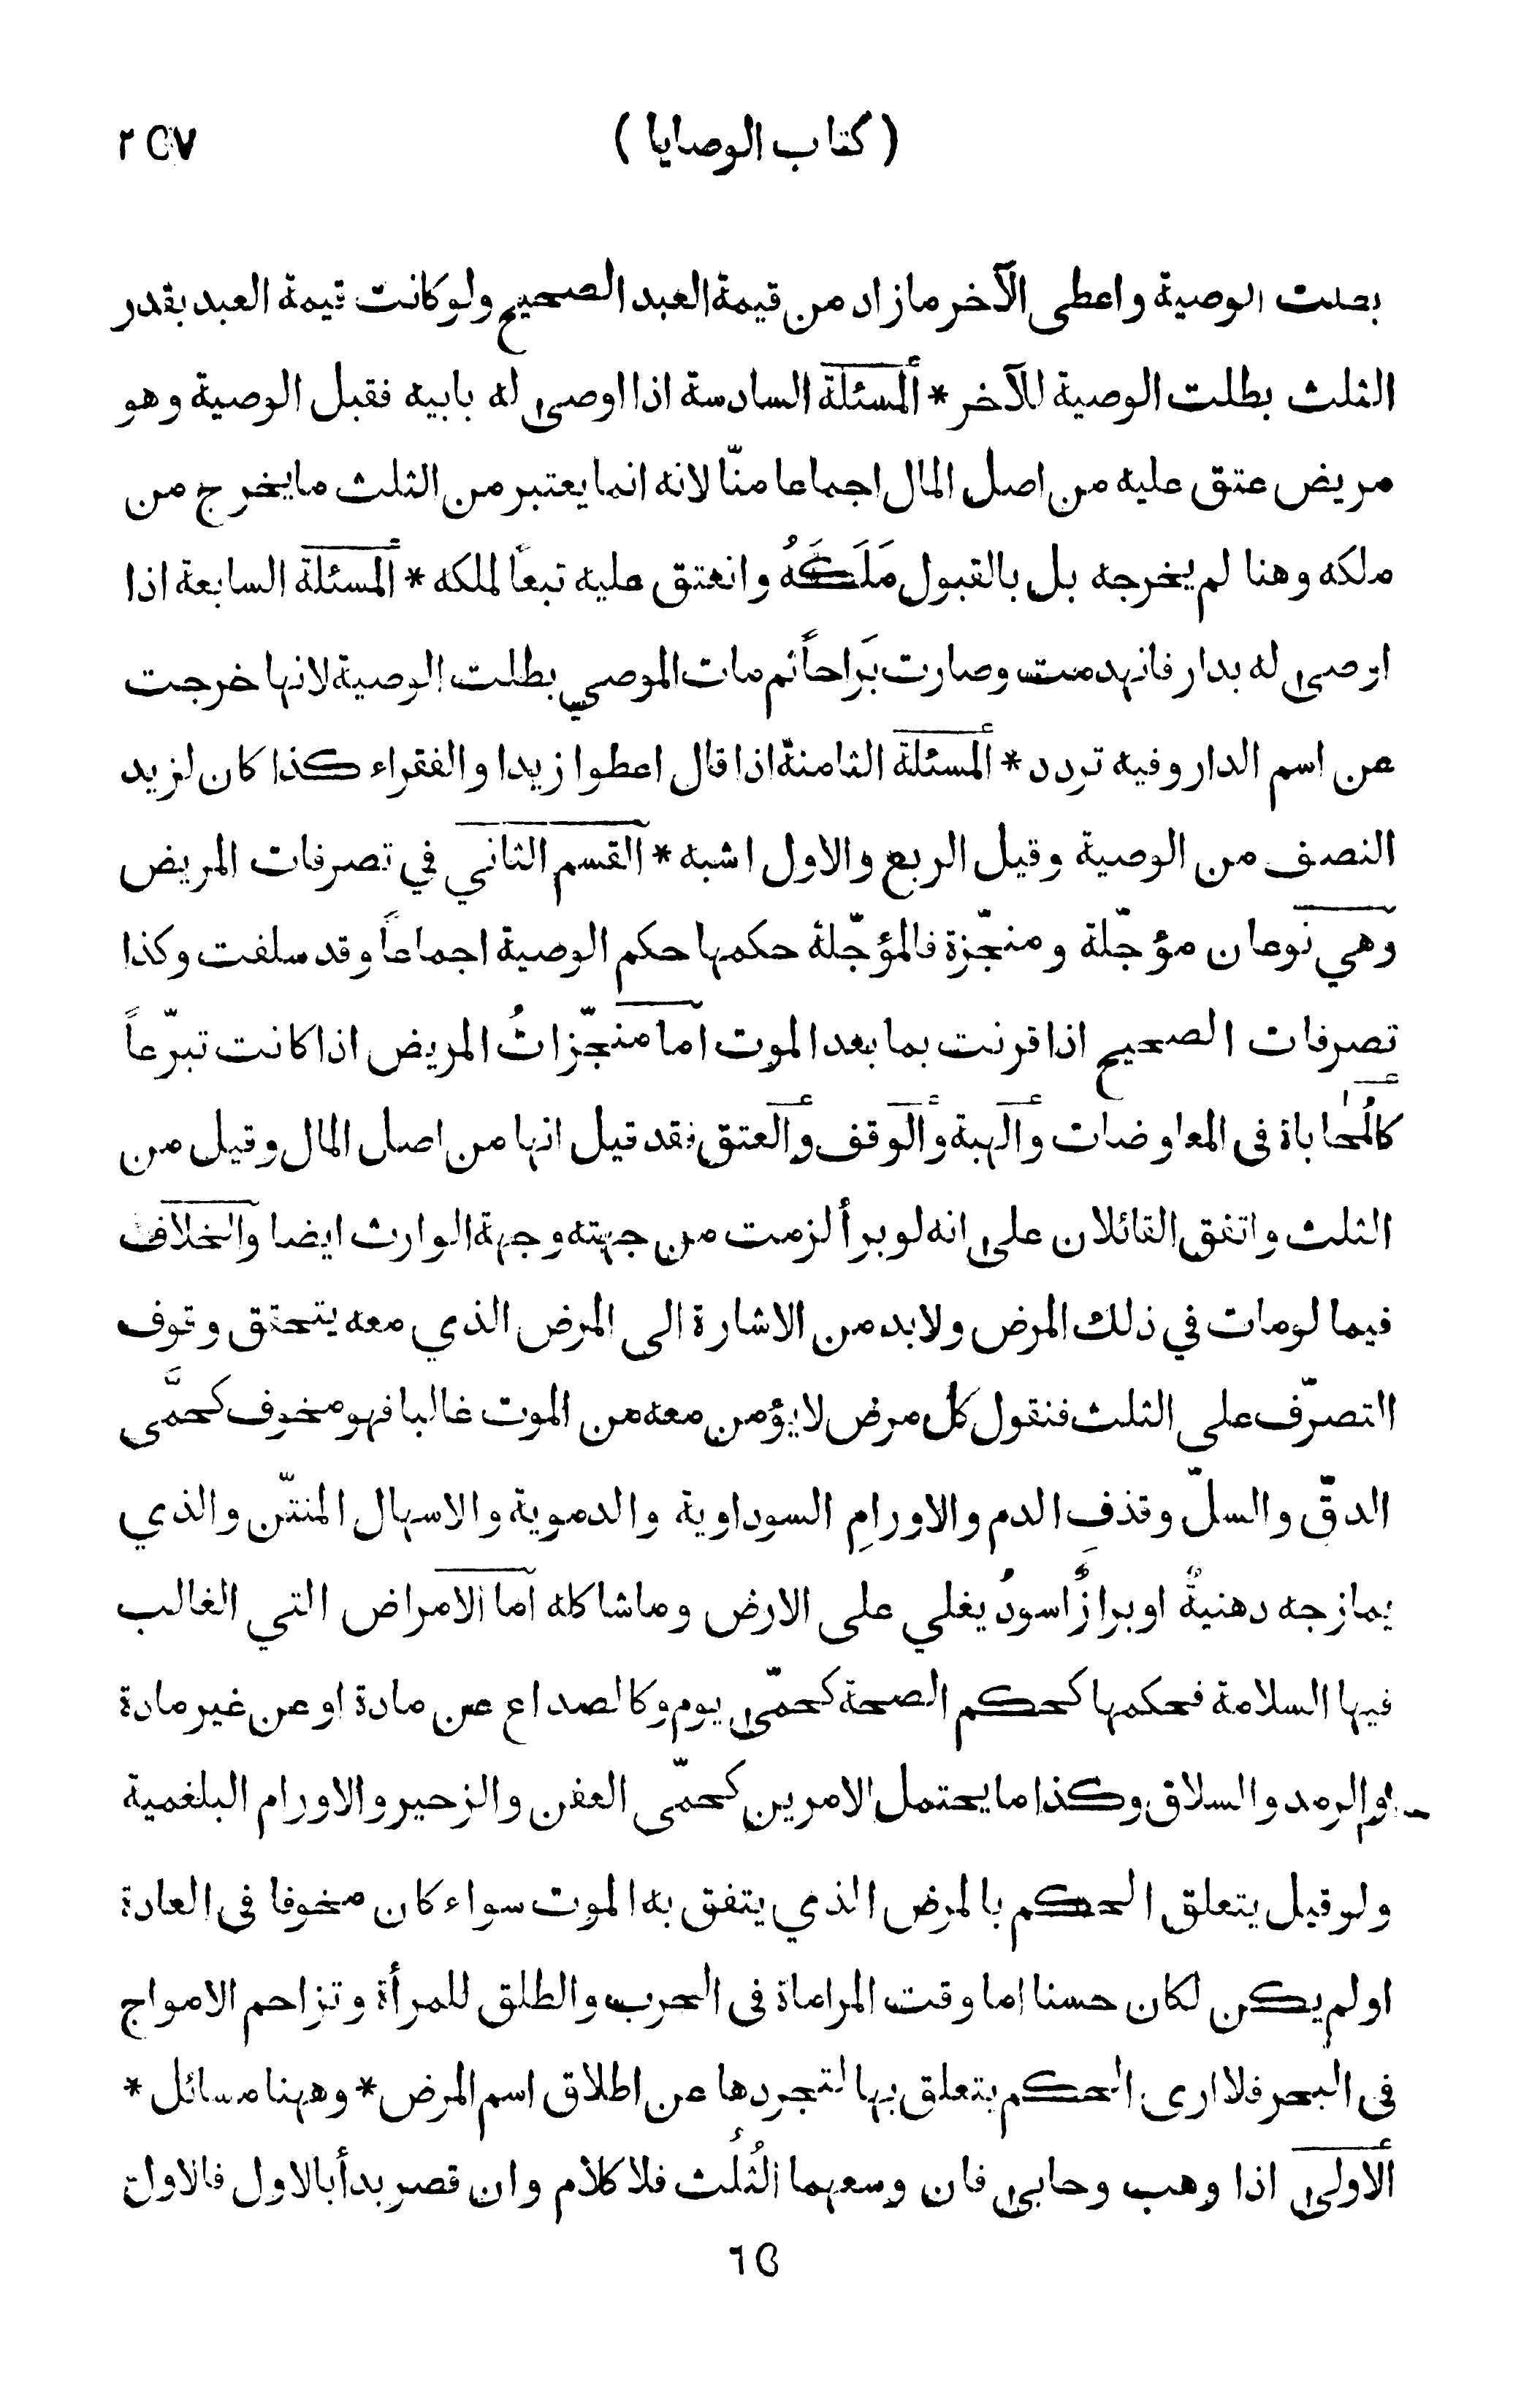 ( كتاب الوصايا ) ٢٥٧
بطلت الوصية واعطى الآخر مازاد من قيمة العبد الصحيح ولو كانت قيمة العبد بقدر
الثلث بطلت الوصية للآخر * ألمسئلة السادسة اذا اوصى له بابيه فقبل الوصية وهو
مريض عتق عليه من اصل المال اجماعا منّا لانه انما يعتبر من الثلث مايخرج من
ملكه وهنا لم يخرجه بل بالقبول مَلَكَهُ وانعتق عليه تبعاً لملكه * ألمسئلة السابعة اذا
اوصى له بدار فانهدمت وصارت بَراحاً ثم مات الموصي بطلت الوصية لانها خرجت
عن اسم الدار وفيه تردد * ألمسئلة الثامنة اذا قال اعطوا زيدا والفقراء كذا كان لزيد
النصف من الوصية وقيل الربع والاول اشبه * القسم الثاني في تصرفات المريض
وهي نوعان مؤجّلة ومنجّزة فالمؤجّلة حكمها حكم الوصية اجماعاً وقد سلفت وكذا
تصرفات الصحيح اذا قرنت بما بعد الموت اما منجّزاتُ المريض اذا كانت تبرّعاً
كالمُحاباة فى المعاوضات وألهبة وألوقف وألعتق فقد قيل انها من اصل المال وقيل من
الثلث واتفق القائلان على انه لو برأ لزمت من جهته وجهة الوارث ايضا والخلاف
فيما لو مات في ذلك المرض ولابد من الاشارة الى المرض الذي معه يتحقق وقوف
التصرّف على الثلث فنقول كل مرض لايؤمن معه من الموت غالبا فهو مخوف كحمَّى
الدقّ والسلّ وقذفِ الدم والاورامِ السوداوية والدموية والاسهال المنتّن والذي
يمازجه دهنيةٌ او برازٌ اسودُ يغلي على الارض وماشاكله اما الامراض التي الغالب
فيها السلامة فحكمها كحكم الصحة كحمّى يوم وكالصداع عن مادة او عن غير مادة
والرمد والسلاق وكذا مايحتمل الامرين كحمّى العفن والزحير والاورام البلغمية
ولو قيل يتعلق الحكم بالمرض الذي يتفق به الموت سواء كان مخوفا فى العادة
او لم يكن لكان حسنا اما وقت المراماة فى الحرب والطلق للمرأة وتزاحم الامواج
فى البحر فلا ارى الحكم يتعلق بها لتجردها عن اطلاق اسم المرض * وههنا مسائل *
ألاولى اذا وهب وحابى فان وسعهما الثُلُث فلا كلام وان قصر بدأ بالاول فالاول
٦٥